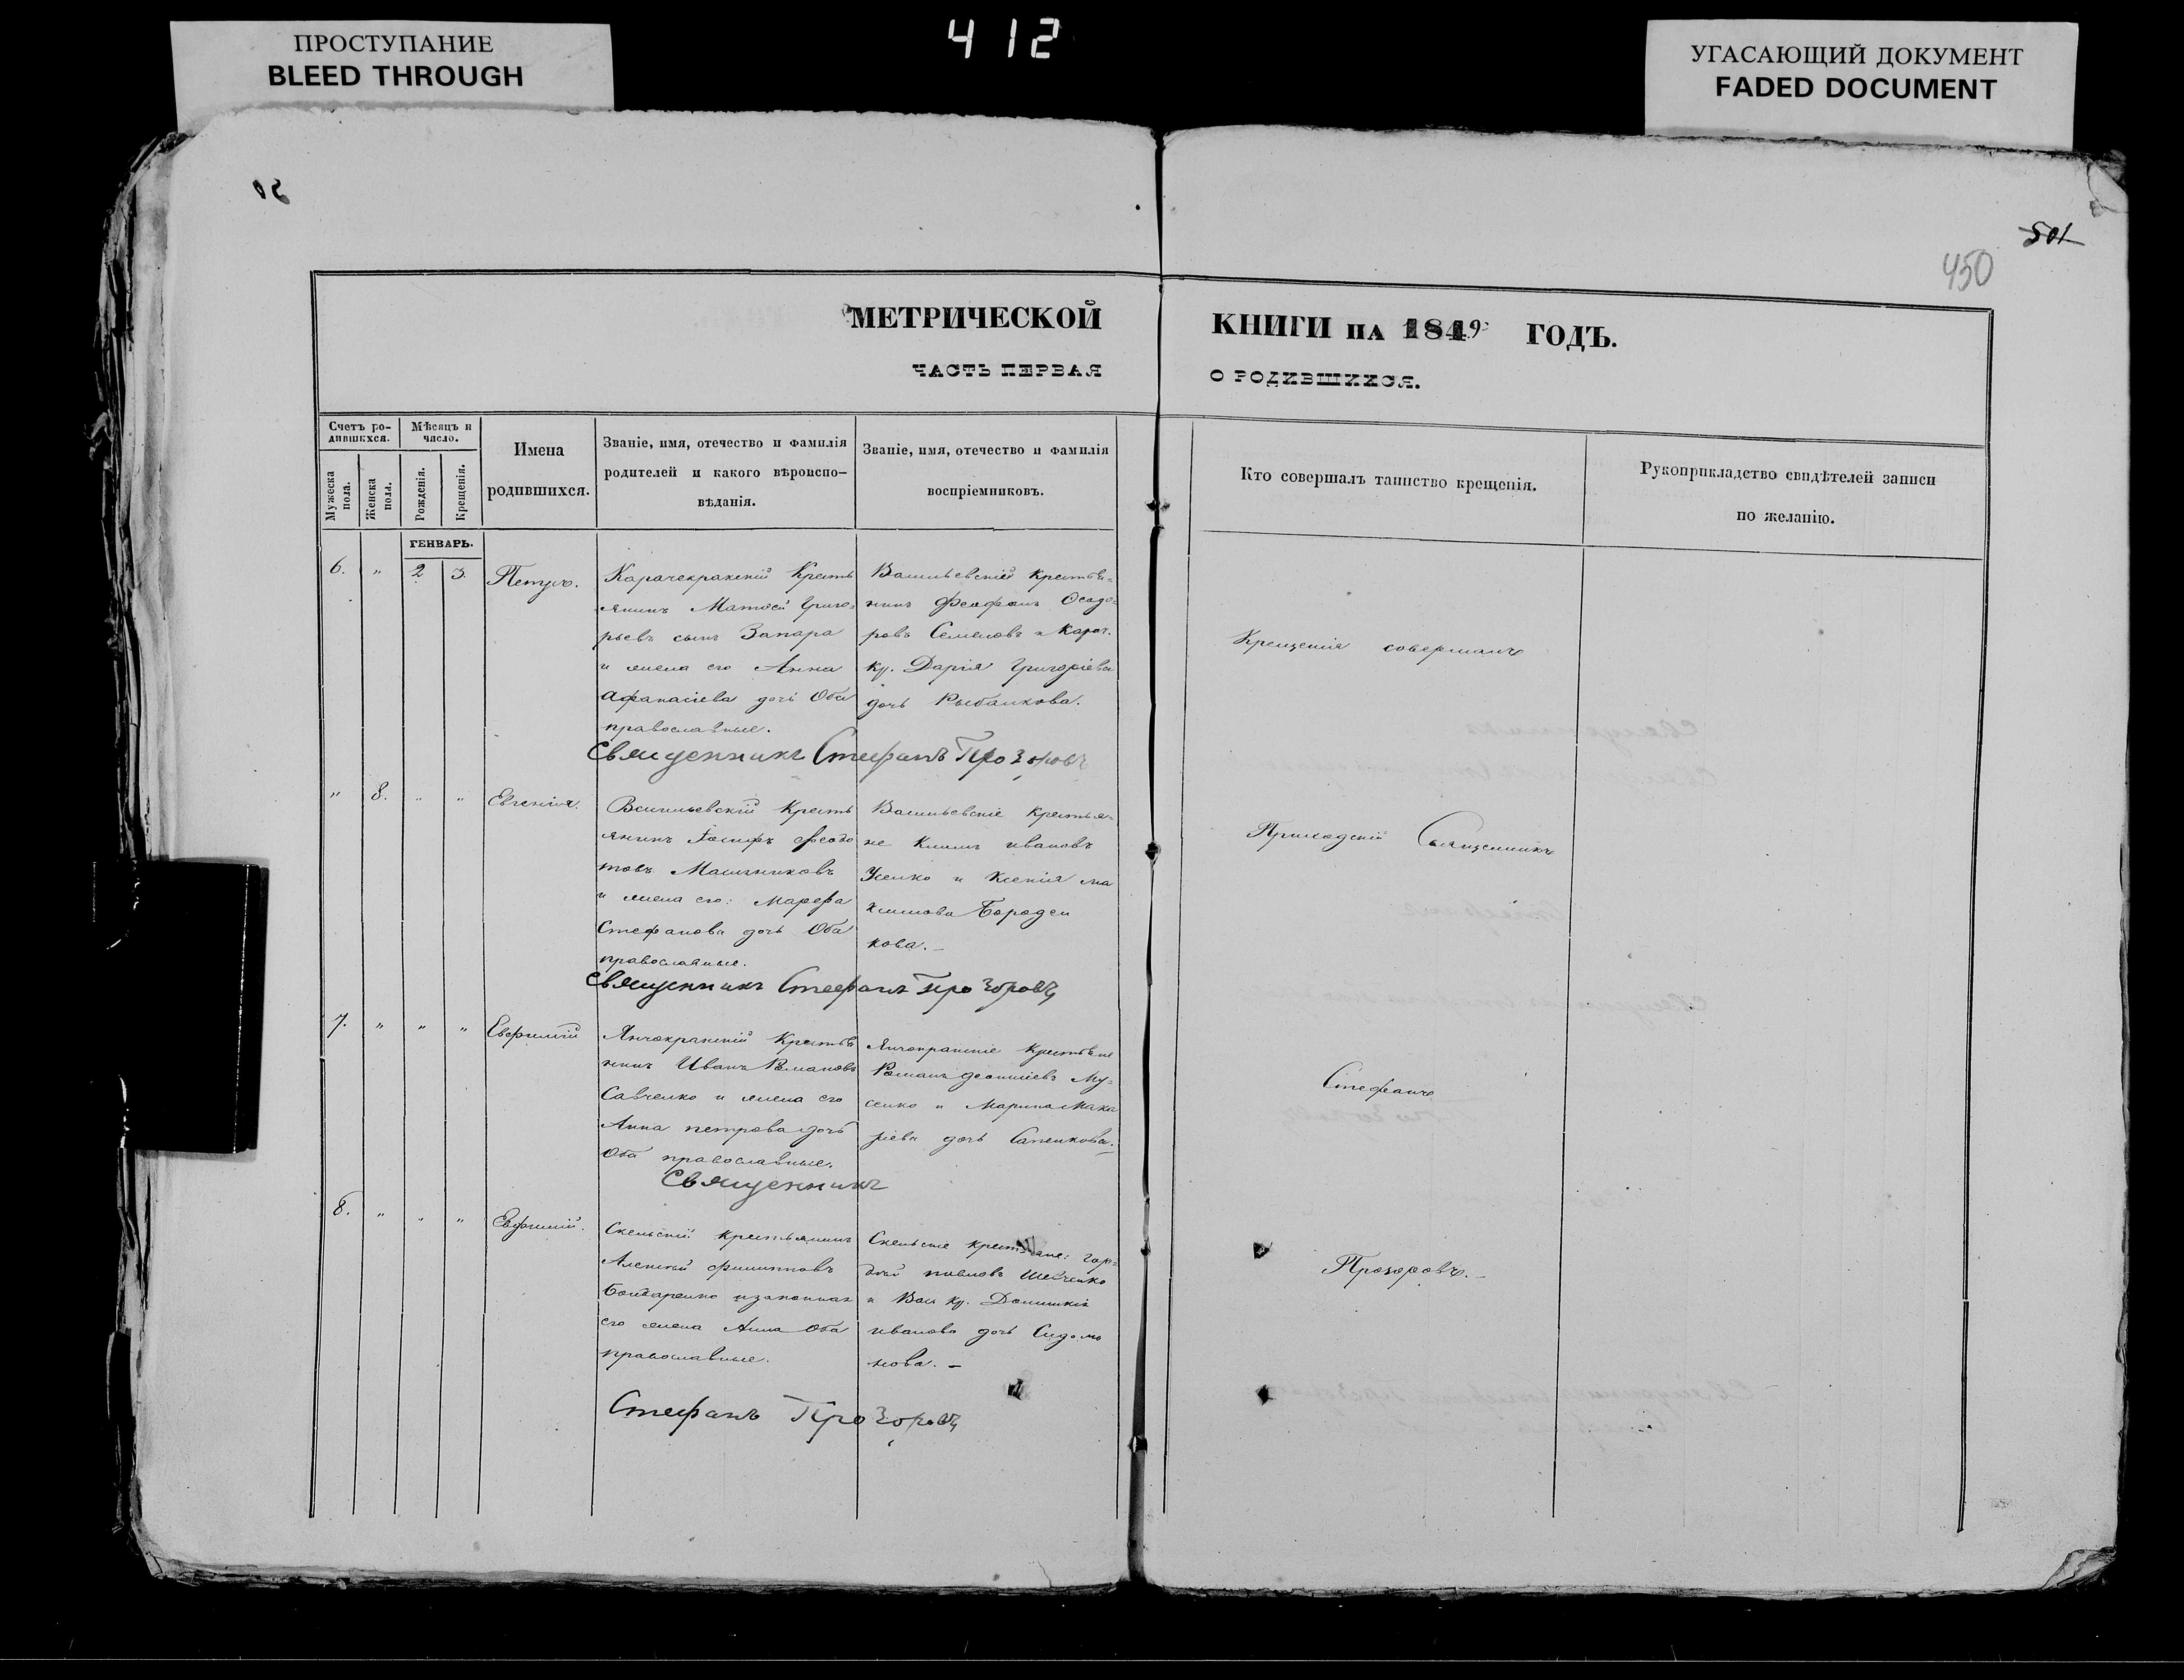 ПРОСТУПАНИЕ
BLEED THROUGH
412
УГАСАЮЩИЙ ДОКУМЕНТ
FADED DOCUMENT
501
450
МЕТРИЧЕСКОЙ КНИГИ НА 1849 ГОДЪ.
ЧАСТЬ ПЕРВАЯ О РОДИВШИХСЯ.
Счетъ ро-
дившихся.
Мужеска пола.
Женска пола.
Мѣсяцъ и
число.
Рожденія.
Крещенія.
Имена
родившихся.
Званіе, имя, отечество и фамилія
родителей и какого вѣроиспо-
вѣданія.
Званіе, имя, отечество и фамилія
воспріемниковъ.
Кто совершалъ таинство крещенія.
Рукоприкладство свидѣтелей записи
по желанію.
ГЕНВАРЬ.
6. " 2 3. Петръ.
Карачекракскій Кресть
янинъ Матвей Григо-
рьевъ сынъ Запара
и жена его Анна
Афанасіева дочь Оба
православные.
Васильевскій крестья-
нинъ Феофанъ
Семеновъ и Карач.
кр. Дарія Григоріева
дочь Рыбалкова.
Священникъ Стефанъ Прозоровъ
" 8. " " Евгенія.
Васильевскій Кресть
янинъ Іосифъ Федо
товъ
и жена его: Марфа
Стефанова дочь Оба
православные.
Васильевскіе крестья-
не Климъ ивановъ
Усенко и Ксенія ма
ксимова Бороден
кова. -
Священникъ Стефанъ Прозоровъ
7. " " " Евфимій
Янчокракскій Крестья
нинъ Иванъ Романовъ
Савченко и жена его
Анна петрова дочь
Оба православные.
Янчокракскіе Крестьяне
Романъ деонисіевъ Му-
сенко и Марина Мака
ріева дочь Сапенкова.
Священникъ
8. " " " Евфимій.
Скельскій крестьянинъ
Алексѣй филипповъ
Бондаренко и законная
его жена Анна Оба
православные.
Скельскіе крестьяне: Гор-
дѣй павловъ Шевченко
и Вас кр. Домникія
иванова дочь Сидомо
нова. -
Стефанъ Прозоровъ
Крещенія совершалъ
Приходскій Священникъ
Стефанъ
Прозоровъ. -